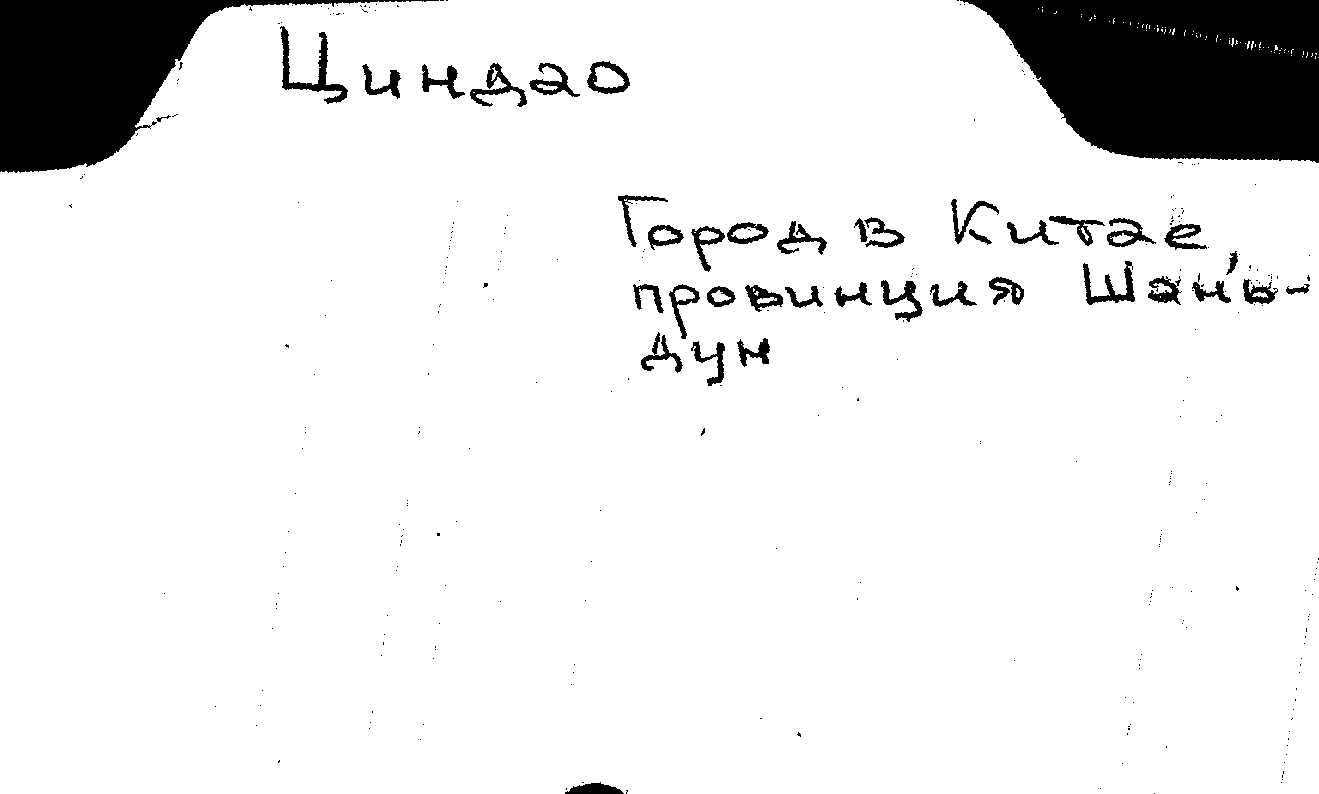 Циндао
Город в Китае,
провинция Шань-
дун